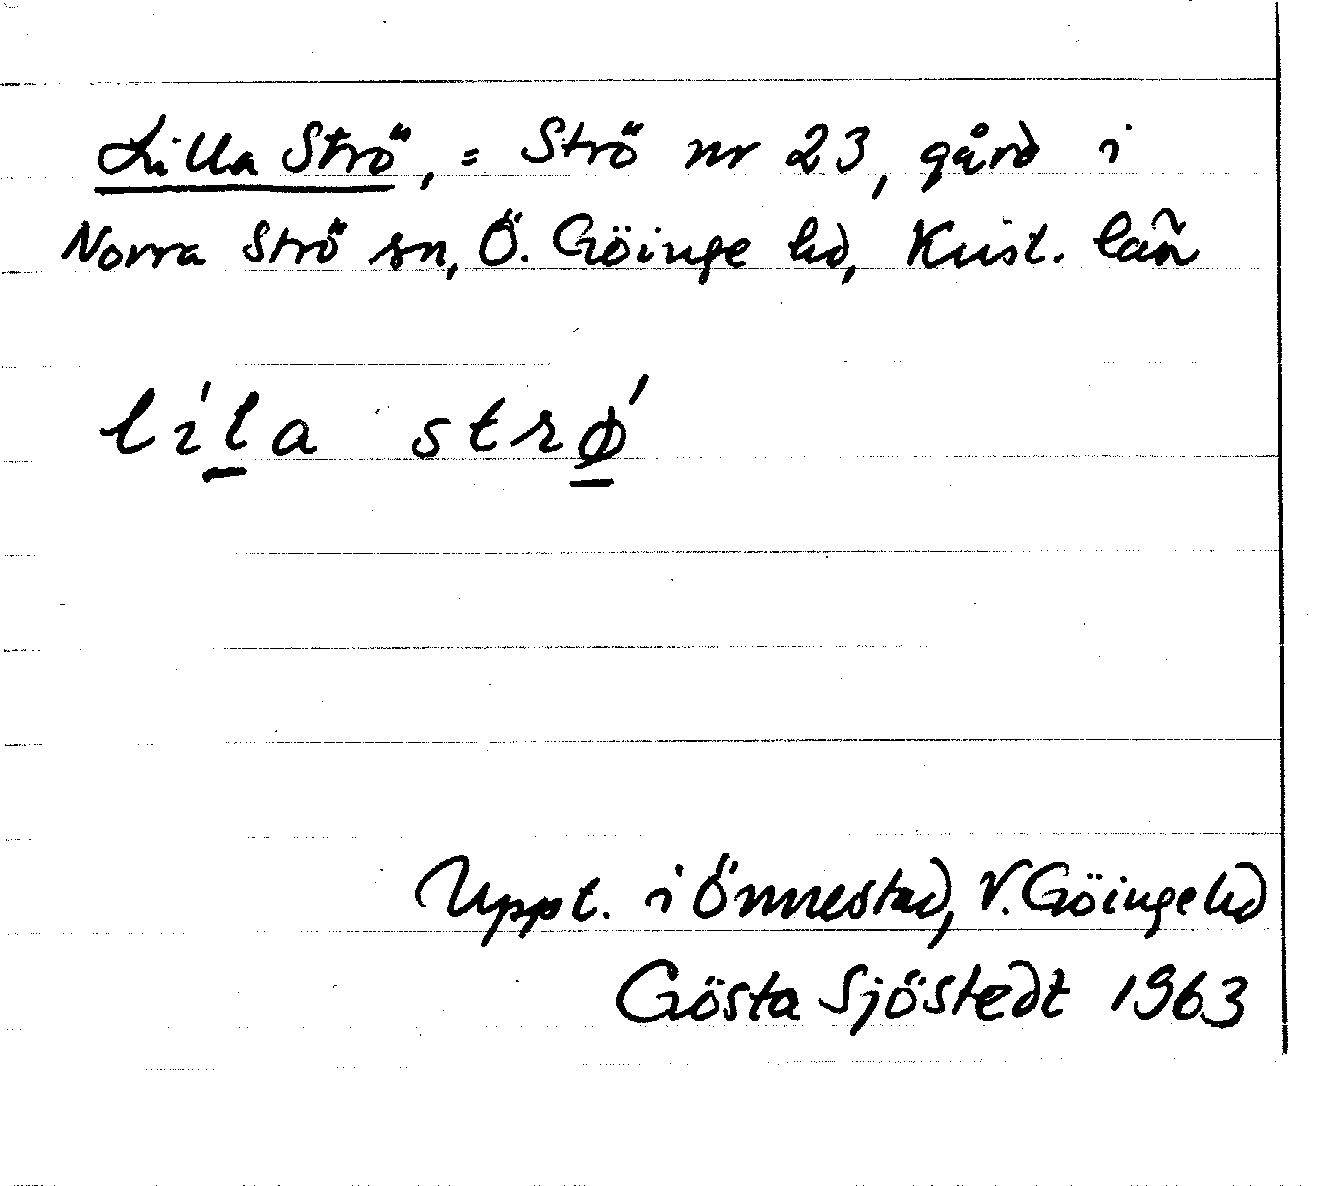 Lilla Strö, = Strö nr 23, gård i
Norra Strö sn, Ö. Göinge hd, Krist. län
lí̵l̲a strǿ̲
Uppt. i Önnestad, V. Göinge hd
Gösta Sjöstedt 1963